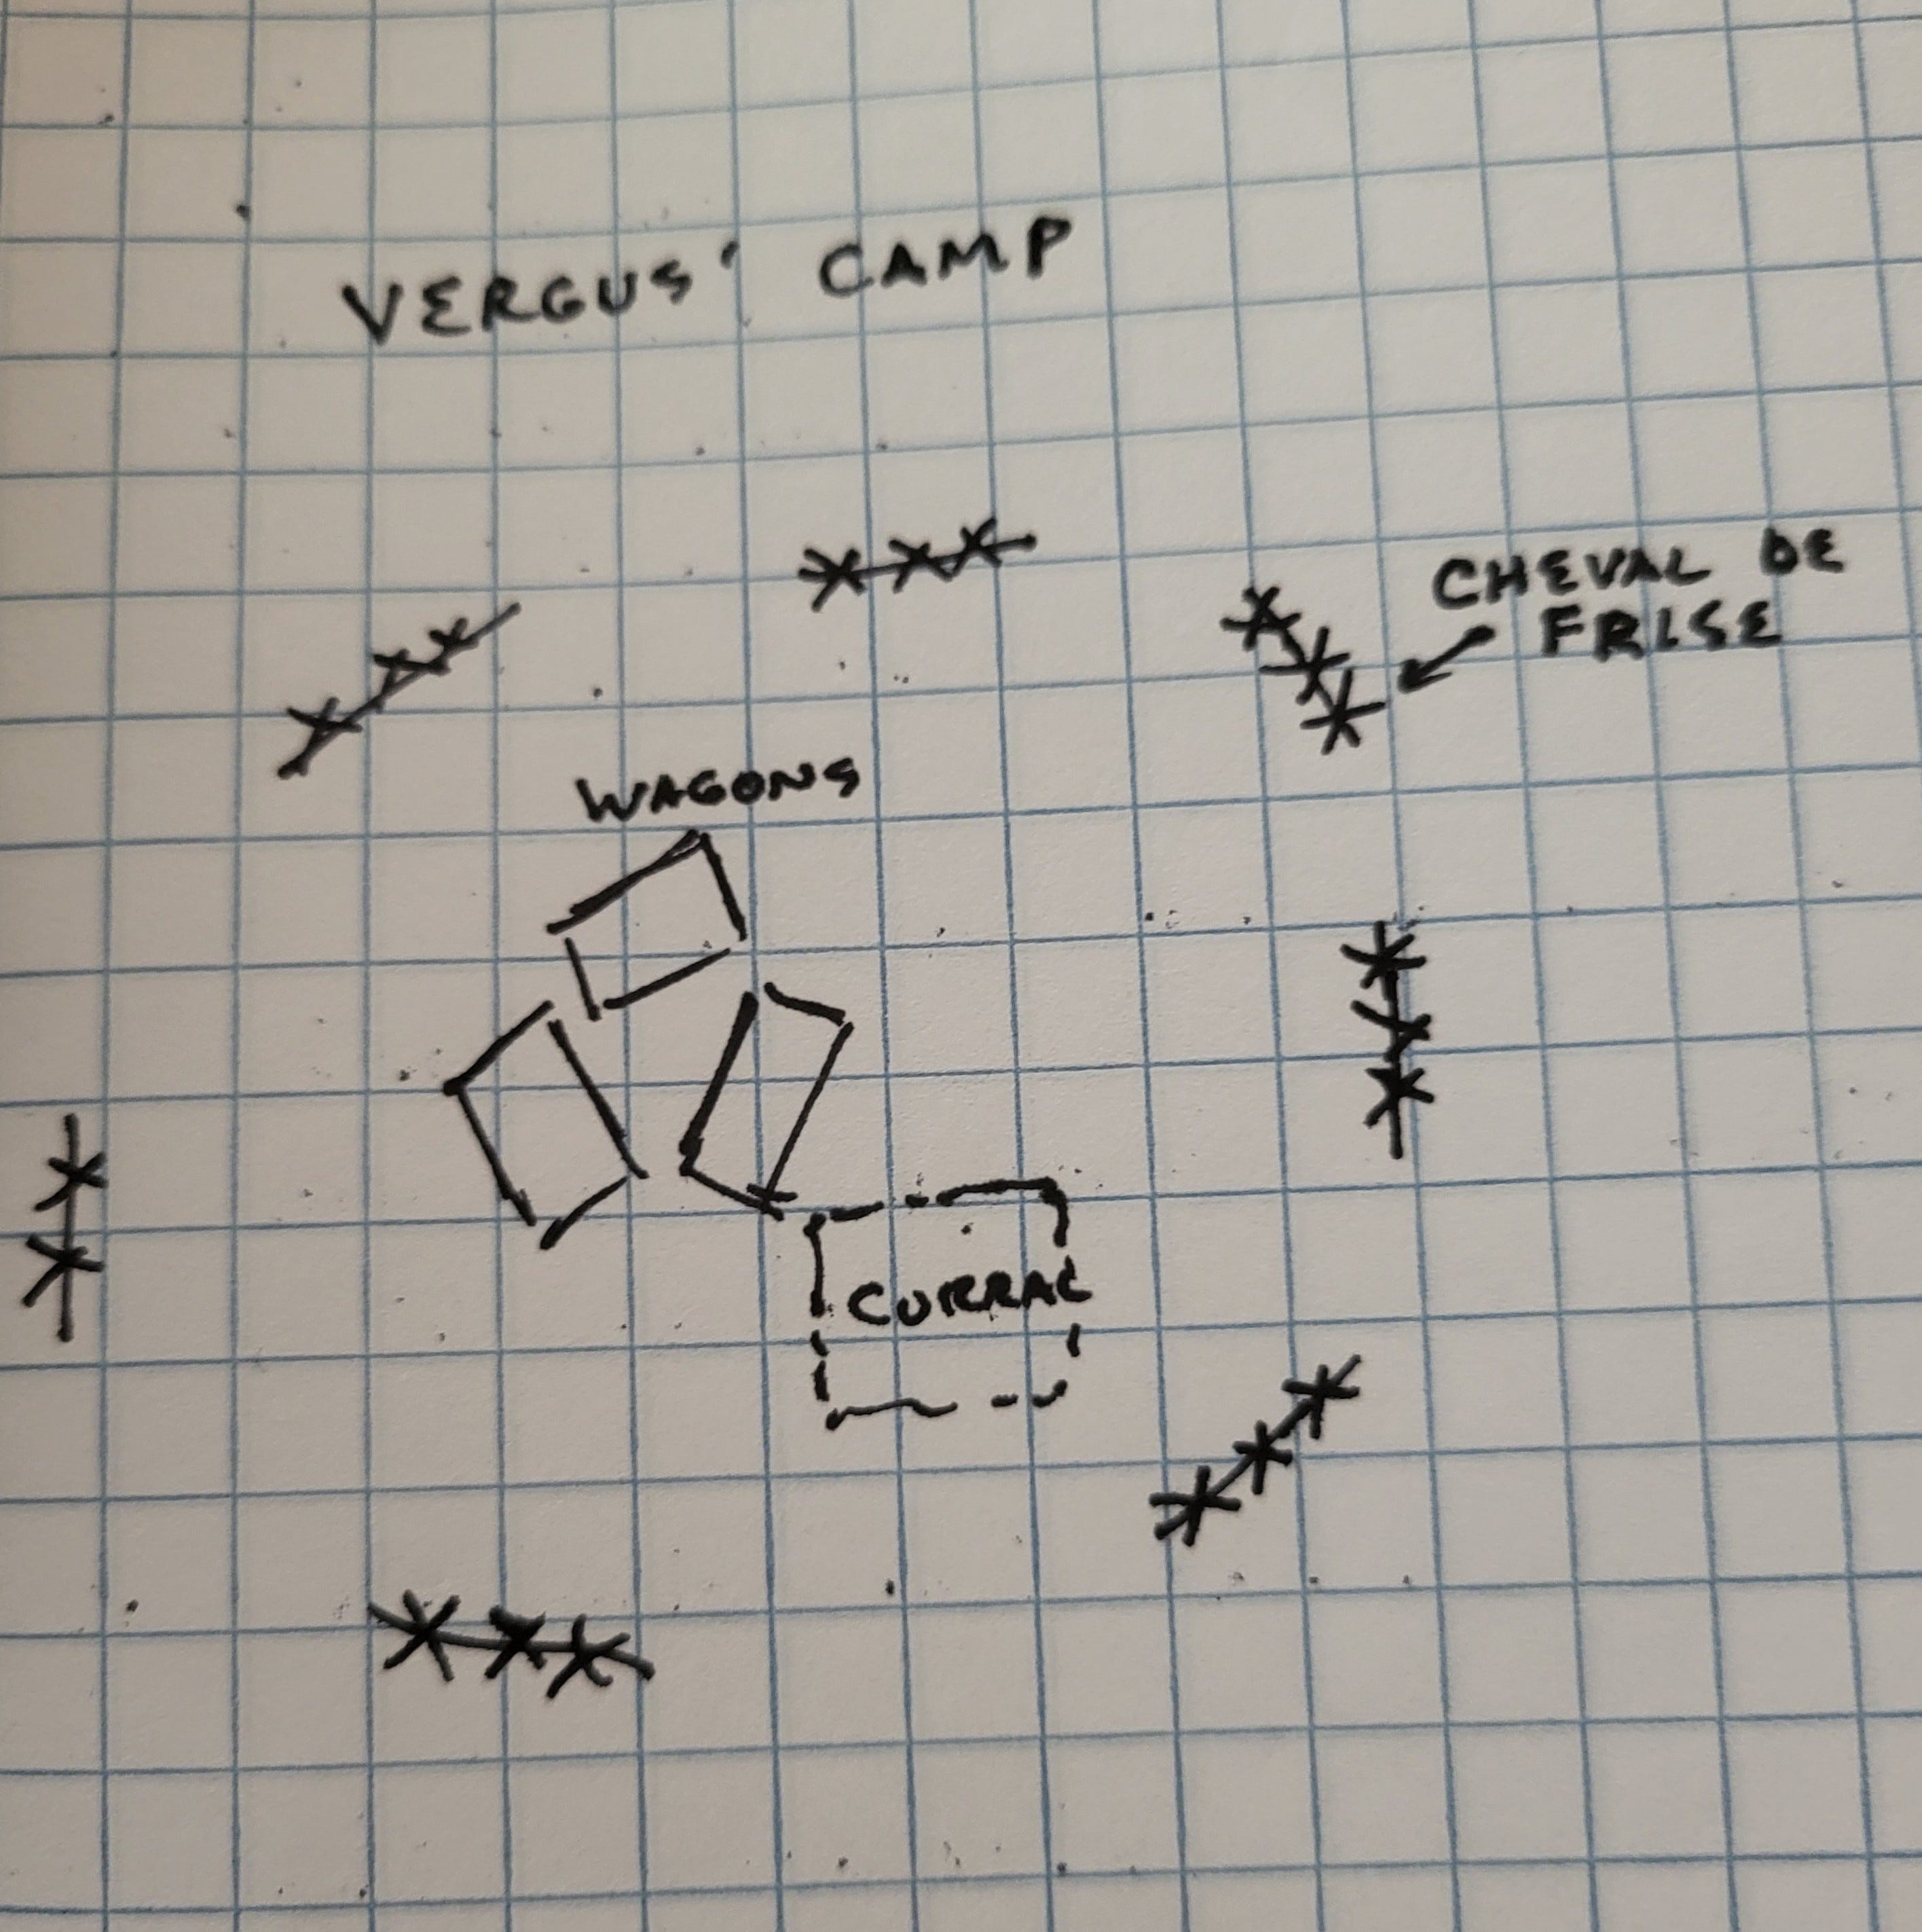 VERGUS' CAMP
CHEVAL DE
FRISE
WAGONS
CORRAL